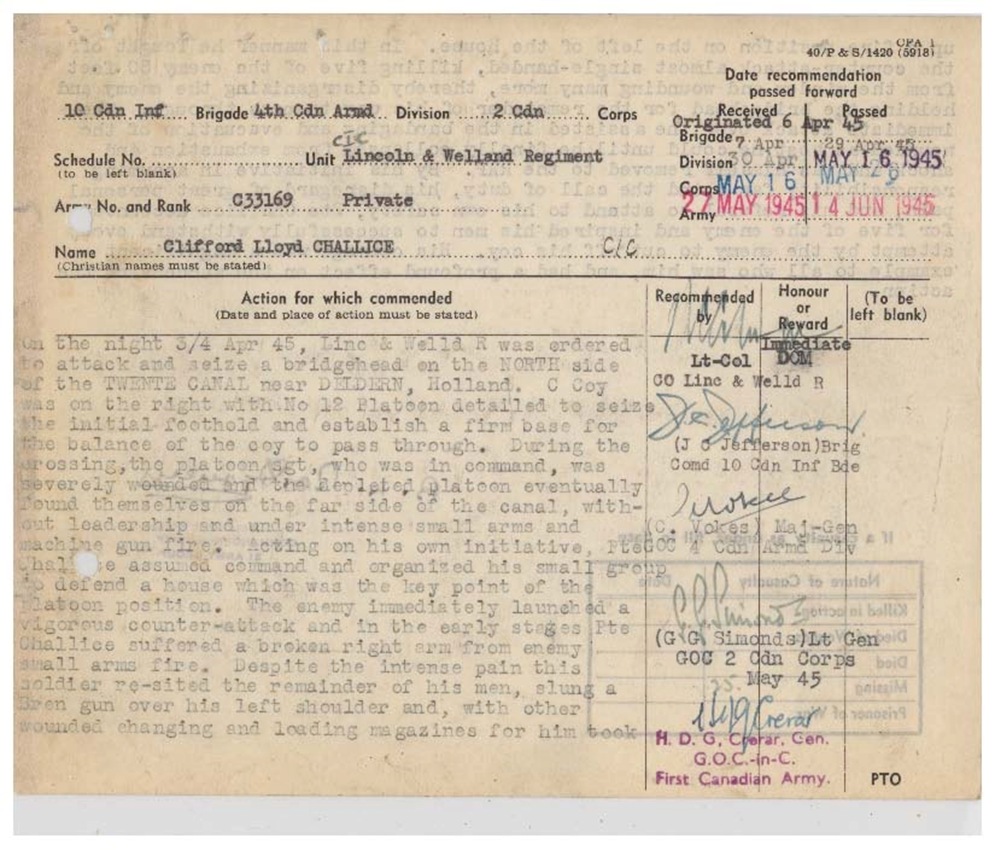 CFA 1
40/P & S/1420 (5918)
Date recommendation
passed forward
10 Cdn Inf Brigade 4th Cdn Armd Division 2 Cdn Corps
Received Passed
Originated 6 Apr 45
CIC
Brigade 7 Apr 29 Apr 45
Schedule No. Unit Lincoln & Welland Regiment
(to be left blank)
Division 30 Apr MAY 16 1945
Corps MAY 16 MAY 29
Army No. and Rank C33169 Private
Army 27 MAY 1945 14 JUN 1945
Name Clifford Lloyd CHALLICE CIC
(Christian names must be stated)
Action for which commended
(Date and place of action must be stated)
Recommended
by
Honour
or
Reward
(To be
left blank)
On the night 3/4 Apr 45, Linc & Welld R was ordered
to attack and seize a bridgehead on the NORTH side
of the TWENTE CANAL near DELDERN, Holland. C Coy
was on the right with No 12 Platoon detailed to seize
the initial foothold and establish a firm base for
the balance of the coy to pass through. During the
crossing, the platoon sgt, who was in command, was
severely wounded and the depleted platoon eventually
found themselves on the far side of the canal, with-
out leadership and under intense small arms and
machine gun fire. Acting on his own initiative, Pte
Challice assumed command and organized his small group
to defend a house which was the key point of the
platoon position. The enemy immediately launched a
vigorous counter-attack and in the early stages Pte
Challice suffered a broken right arm from enemy
small arms fire. Despite the intense pain this
soldier re-sited the remainder of his men, slung a
Bren gun over his left shoulder and, with other
wounded changing and loading magazines for him took
Immediate
DCM
Lt-Col
CO Linc & Welld R
J C Jefferson.
(J C Jefferson)Brig
Comd 10 Cdn Inf Bde
C Vokes
(C. Vokes) Maj-Gen
GOC 4 Cdn Armd Div
G G Simonds
(G G Simonds)Lt Gen
GOC 2 Cdn Corps
25. May 45
HDG Crerar
H. D. G, Crerar, Gen.
G.O.C.-in-C.
First Canadian Army.
PTO